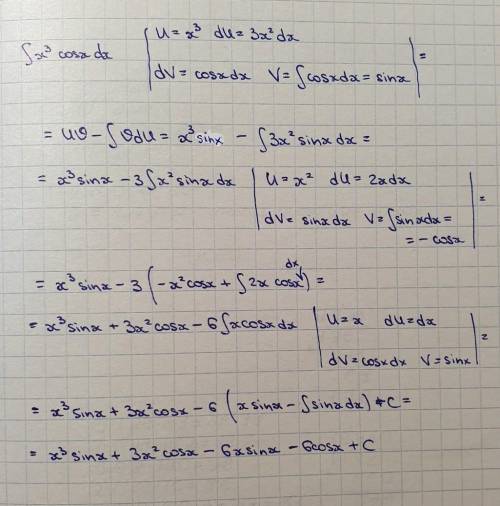 ∫x³ cosx dx | U = x³ dU = 3x² dx
dV = cosx dx V = ∫cosx dx = sinx | =
= Uϑ − ∫ϑdU = x³ sinx − ∫3x² sinx dx =
= x³ sinx − 3∫x² sinx dx | U = x² dU = 2x dx
dV = sinx dx V = ∫sinx dx = | =
= − cosx
= x³ sinx − 3 (−x² cosx + ∫2x cosx dx) =
= x³ sinx + 3x² cosx − 6∫x cosx dx | U = x dU = dx
dV = cosx dx V = sinx | =
= x³ sinx + 3x² cosx − 6 (x sinx − ∫sinx dx) + C =
= x³ sinx + 3x² cosx − 6x sinx − 6cosx + C